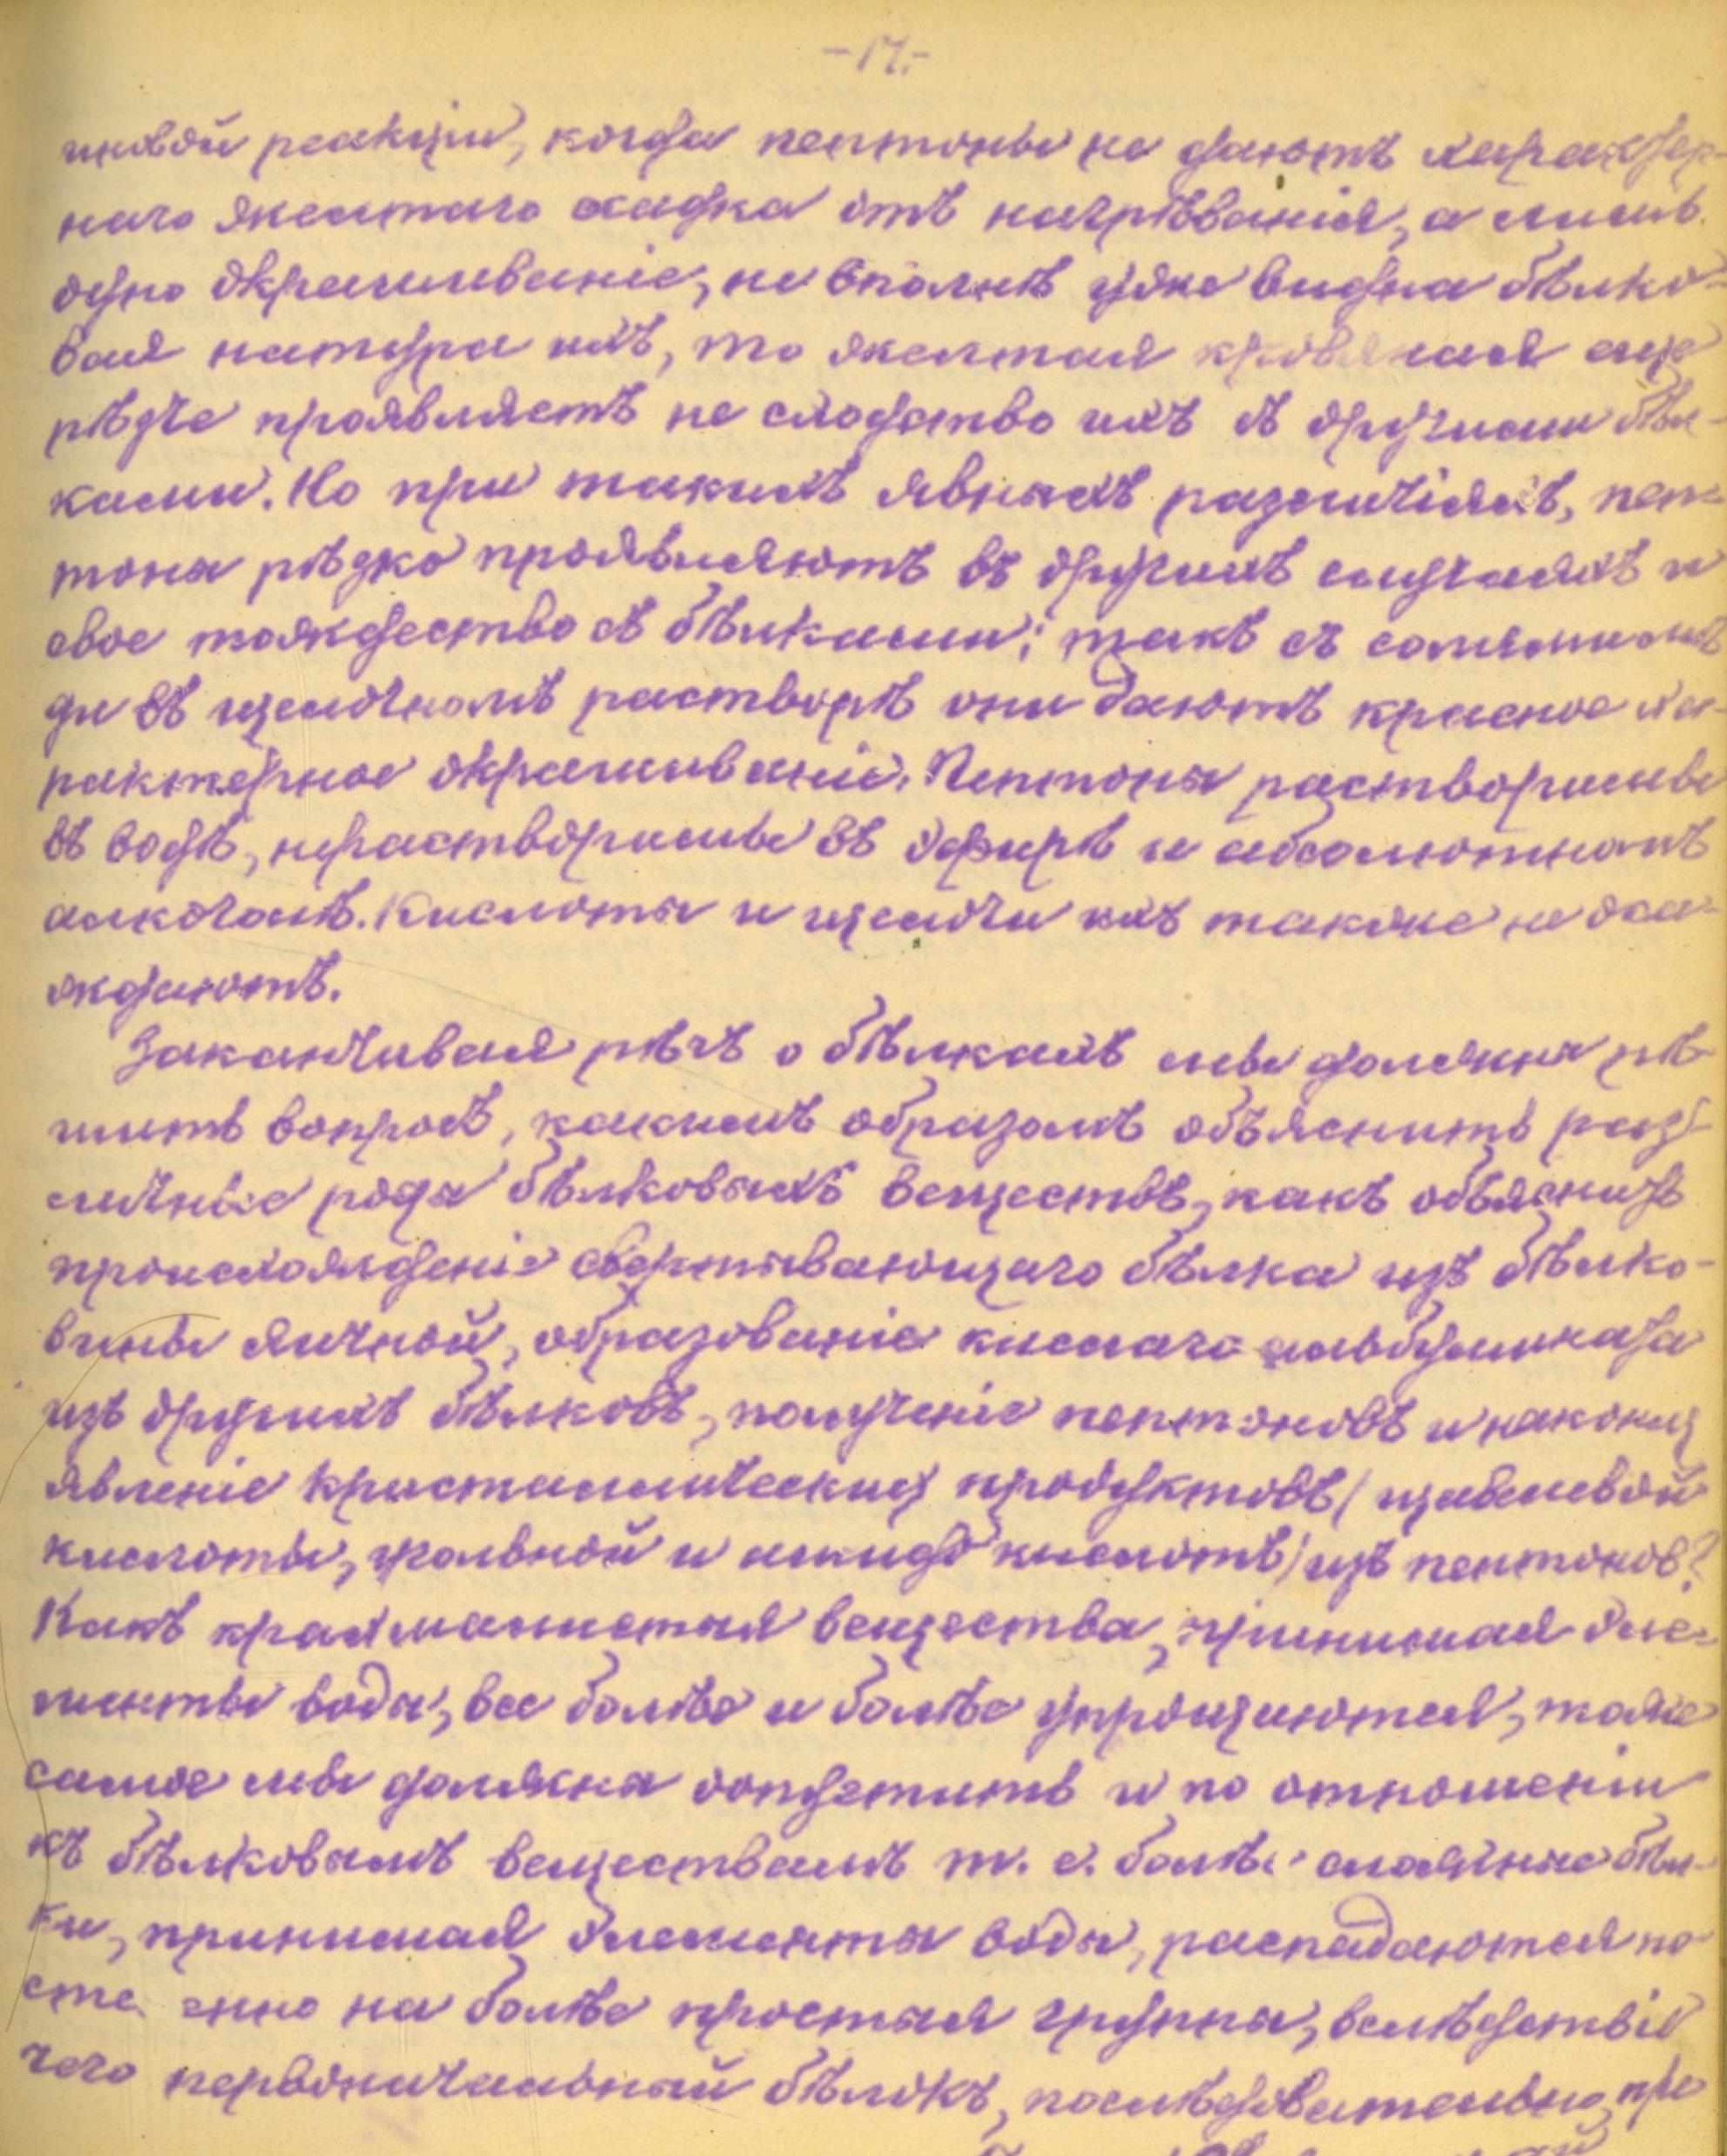 -17.-
иновой реакціи, когда пептоны не даютъ характер-
наго желтаго осадка отъ нагрѣванія, а лишь
одно окрашиваніе, не вполнѣ уже видна бѣлко-
вая натура ихъ, то желтая кровяная еще
рѣзче проявляетъ не сходство ихъ съ другими бѣл-
ками. Но при такихъ явныхъ различіяхъ, пеп-
тоны рѣзко проявляютъ въ другихъ случаяхъ и
свое тождество съ бѣлками; такъ съ солями мѣ
ди въ щелочномъ растворѣ они даютъ красное ха-
рактерное окрашиваніе. Пептоны растворимы
въ водѣ, нерастворимы въ эфирѣ и абсолютномъ
алкоголѣ. Кислоты и щелочи ихъ также не оса-
ждаютъ.
Заканчивая рѣчь о бѣлкахъ мы должны рѣ-
шить вопросъ, какимъ образомъ объяснить раз-
личные роды бѣлковыхъ веществъ, какъ объяснить
происхожденіе свертывающаго бѣлка изъ бѣлко-
вины яичной, образованіе кислаго альбумината
изъ другихъ бѣлковъ, полученіе пептоновъ и наконец
явленіе кристаллических продуктовъ (щавелевой
кислоты, угольной и амидо кислотъ) изъ пептонов?
Какъ крахмалистыя вещества, принимая эле-
менты воды, все болѣе и болѣе упрощаются, тоже
самое мы должны допустить и по отношеніи
къ бѣлковымъ веществамъ т. е. болѣе сложные бѣл-
ки, принимая элементы воды, распадаются по-
сте енно на болѣе простыя группы, вслѣдствіе
чего первоначальный бѣлокъ, послѣдовательно, пре